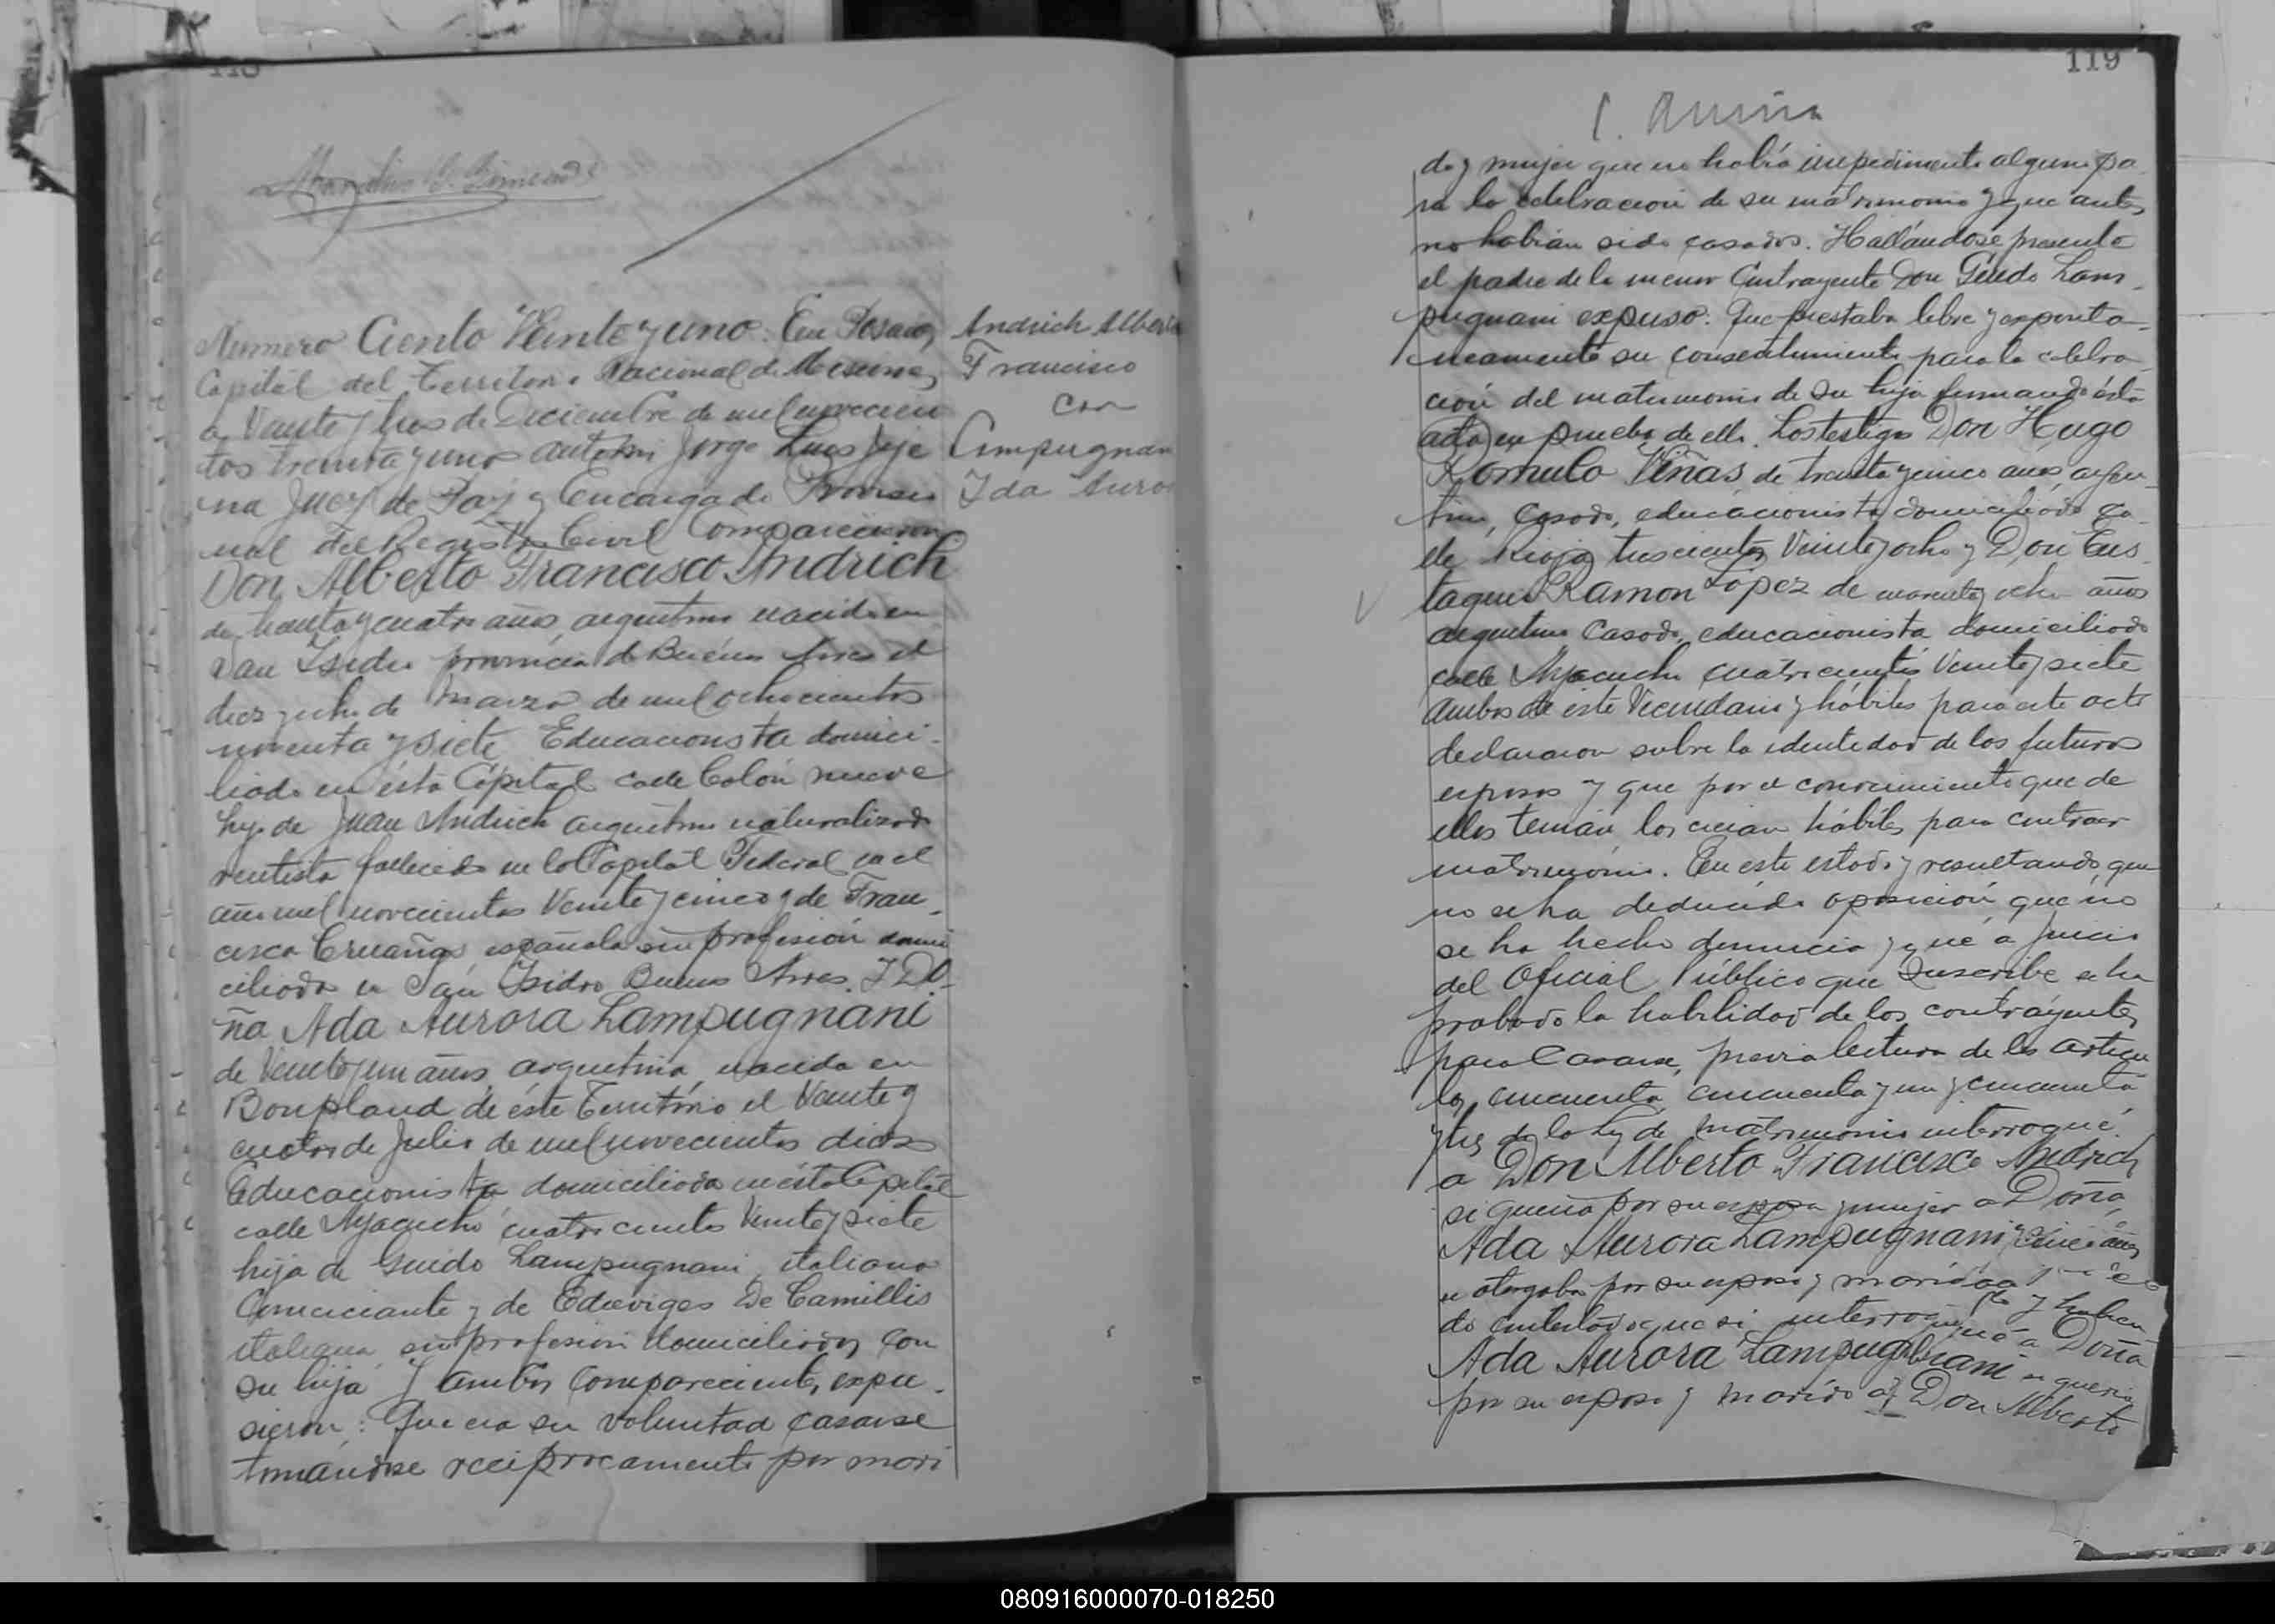 118
Numero Ciento Veinte y uno. En Posadas
Capital del Territorio Nacional de Misiones
a Veinte y tres de Diciembre de mil novecien
tos treinta y uno ante mi Jorge Luis
na Juez de Paz y Encargado Provisio
nal del Registro Civil Comparecieron
Don Alberto Francisco Andrich
de treinta y cuatro años, argentino nacido en
San Isidro provincia de Buenos Aires el
diez y ocho de Marzo de mil ochocientos
noventa y siete Educacionista domici-
liado en ésta Cápital calle Colón nueve
hijo de Juan Andrich argentino naturalizado
rentista fallecido en la Capital Federal en el
año mil novecientos Veinte y cinco y de Fran-
cisca Cruañas española sin profesión domi
ciliada en San Isidro Buenos Aires. Y Do-
ña Ada Aurora Lampugnani
de Veinte y un años, argentina, nacida en
Bonpland de éste Territorio el Veinte y
cuatro de Julio de mil novecientos diez
Educacionista domiciliada en ésta Capital
calle Ayacucho cuatrocientos Veinte y siete
hija de Guido Lampugnani, italiano
Comerciante y de Edeviges De Camillis
italiana, sin profesión domiciliados con
su hija Y ambos Comparecientes expu-
sieron: Que era su voluntad casarse
tomandose reciprocamente por mari
Andrich Alberto
Francisco
con
Ada Auror
119
do y mujer que no habia impedimento alguno pa
ra la celebracion de su matrimonio y que antes
no habian sido casados. Hallándose presente
el padre de la menor Contrayente Don Guido Lam-
pugnani expuso: Que prestaba libre y esponta-
neamente su consentimiento para la celebra
ción del matrimonio de su hija firmando ésta
acta en prueba de ello. Los testigos Don Hugo
Romulo Viñas, de treinta y cinco años, argen-
tino, Casado, educacionista, domiciliado ca-
lle Rioja trescientos Veinte y ocho y Don Eus-
taquio Ramon López de cuarenta y ocho años
argentino Casado, educacionista domiciliado
calle Ayacucho cuatrocientos Veinte y siete
ambos de éste Vecindario y hábiles para este acto
declararon sobre la identidad de los futuros
esposos y que por el conocimiento que de
ellos tenían los creian hábiles para contraer
matrimonio. En este estado y resultando, que
no se ha deducido oposición, que no
se ha hecho denuncia y que a juicio
del Oficial Público que Suscribe se ha
probado la habilidad de los contrayentes
para Casarse, previa lectura de los articu
los cincuenta, cincuenta y uno y cincuenta
y tres de la ley de matrimonio interrogué
a Don Alberto Francisco Andrich
si queria por su esposa y mujer a Doña
Ada Aurora Lampugnani
se otorgaba por su esposo y marido
do contestado que si interrogué a Doña
Ada Aurora Lampugnani si queria
por su esposo y marido a Don Alberto
080916000070-018250